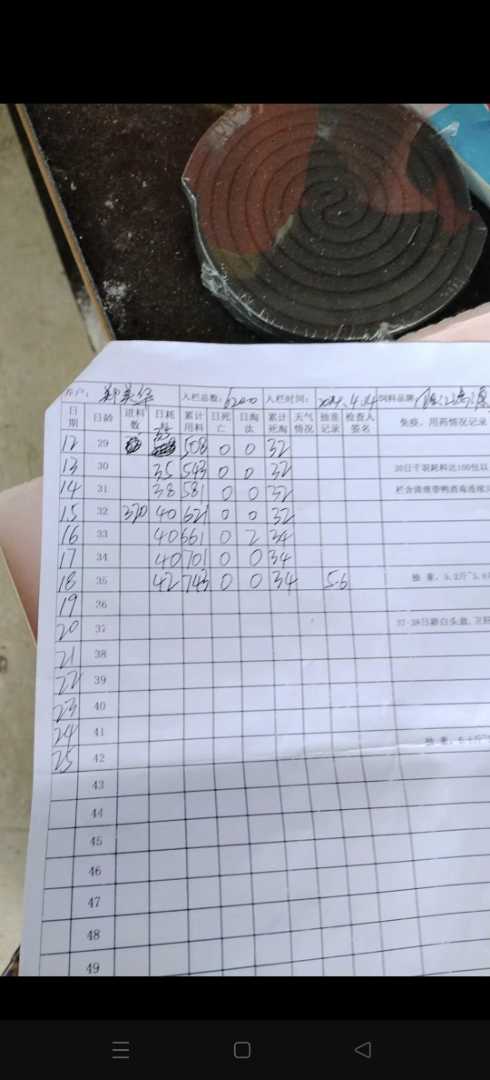 户: 郑美华 入栏总数: 6200 入栏时间: 4.14 饲料品牌:
日期 日龄 进料数 日耗料 累计用料 日死亡 日淘汰 累计死淘 天气情况 抽重记录 检查人签名 免疫、用药情况记录
12 29 35 508 0 0 32
13 30 35 543 0 0 32
14 31 38 581 0 0 32
15 32 370 40 621 0 0 32
16 33 40 661 0 2 34
17 34 40 701 0 0 34
18 35 42 743 0 0 34 5.6
19 36
20 37
21 38
22 39
23 40
24 41
25 42
43
44
45
46
47
48
49